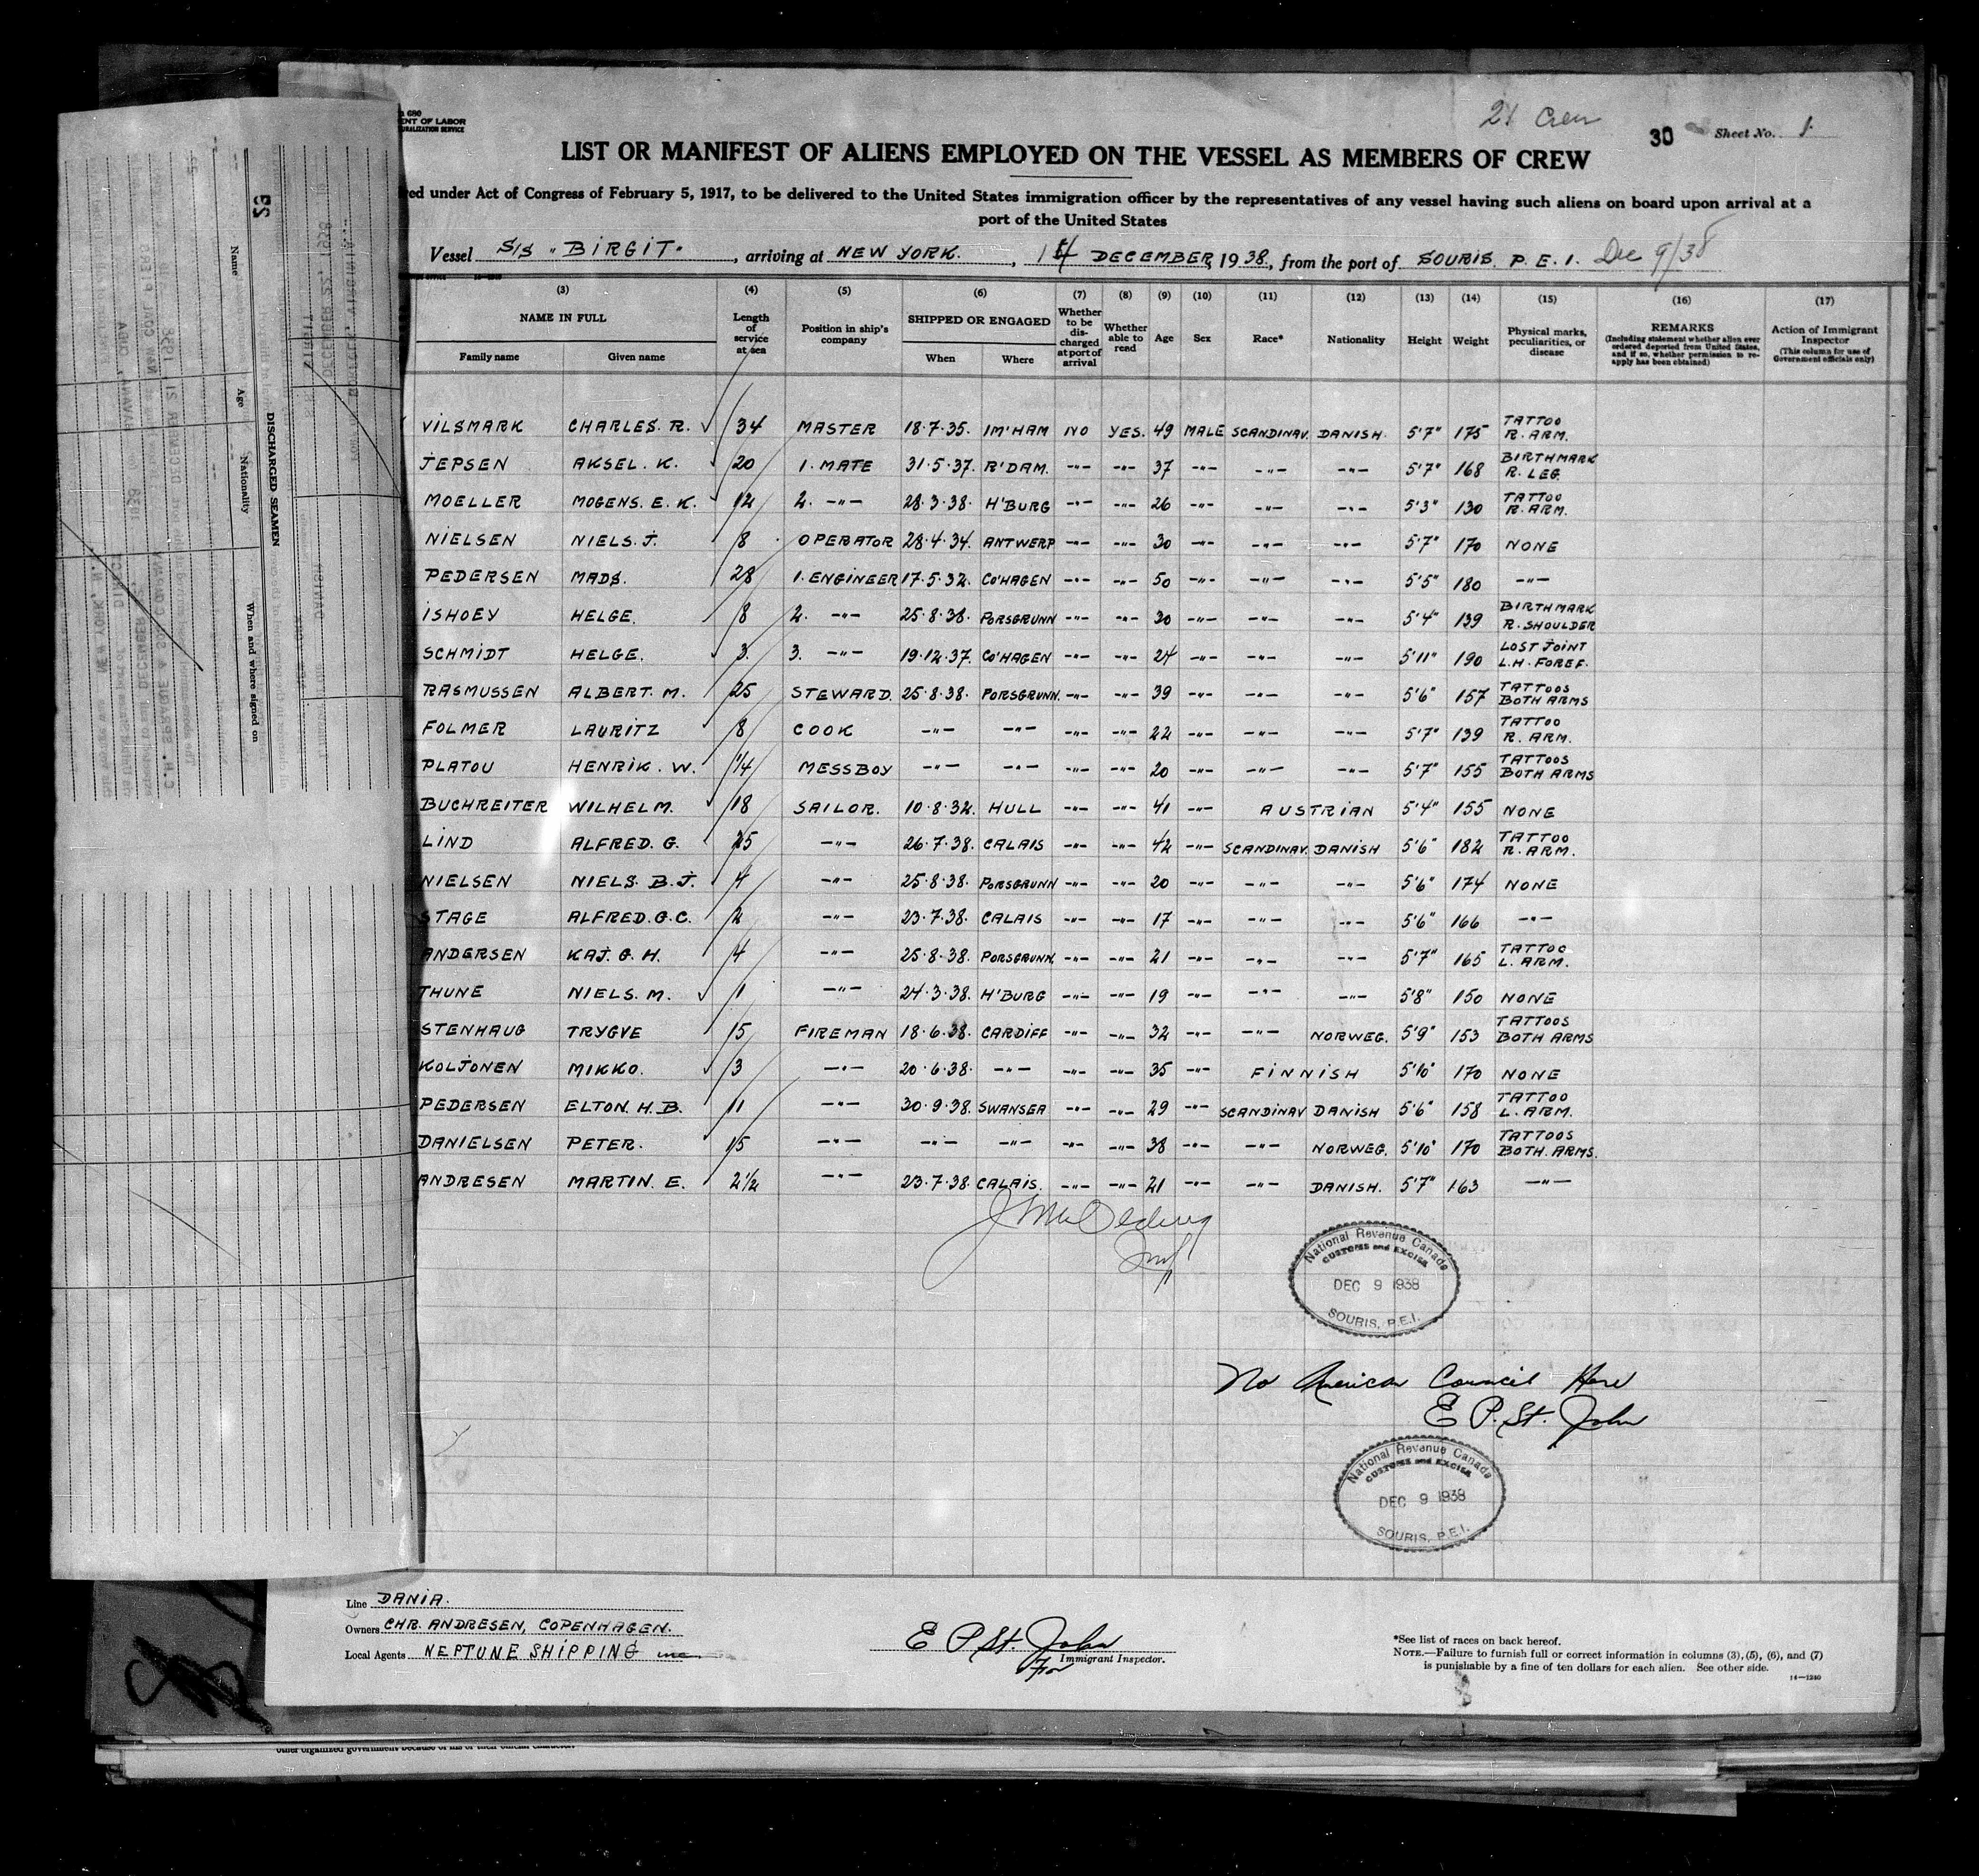 680
ENT OF LABOR
URALIZATION SERVICE
21 Crew
30 Sheet No. 1
LIST OR MANIFEST OF ALIENS EMPLOYED ON THE VESSEL AS MEMBERS OF CREW
red under Act of Congress of February 5, 1917, to be delivered to the United States immigration officer by the representatives of any vessel having such aliens on board upon arrival at a
port of the United States
Vessel S/S "BIRGIT", arriving at NEW YORK., 14 DECEMBER, 1938, from the port of SOURIS. P. E. I. Dec 9/38
(3) (4) (5) (6) (7) (8) (9) (10) (11) (12) (13) (14) (15) (16) (17)
NAME IN FULL
Family name Given name
Length of service at sea
Position in ship's company
SHIPPED OR ENGAGED
When Where
Whether to be discharged at port of arrival
Whether able to read
Age Sex Race* Nationality Height Weight
Physical marks, peculiarities, or disease
REMARKS
(Including statement whether alien ever ordered deported from United States, and if so, whether permission to reapply has been obtained)
Action of Immigrant Inspector
(This column for use of Government officials only)
VILSMARK CHARLES. R. 34 MASTER 18·7·35. IM'HAM NO YES. 49 MALE SCANDINAV. DANISH. 5'7" 175 TATTOO R. ARM.
JEPSEN AKSEL. K. 20 1. MATE 31·5·37. R'DAM. -"- -"- 37 -"- -"- -"- 5'7" 168 BIRTHMARK R. LEG.
MOELLER MOGENS. E. K. 12 2. -"- 28·3·38. H'BURG -"- -"- 26 -"- -"- -"- 5'3" 130 TATTOO R. ARM.
NIELSEN NIELS. J. 8 OPERATOR 28·4·34. ANTWERP -"- -"- 30 -"- -"- -"- 5'7" 170 NONE
PEDERSEN MADS. 28 1. ENGINEER 17·5·32. CO'HAGEN -"- -"- 50 -"- -"- -"- 5'5" 180 -"-
ISHOEY HELGE. 8 2. -"- 25·8·38. PORSGRUNN -"- -"- 30 -"- -"- -"- 5'4" 139 BIRTHMARK R. SHOULDER
SCHMIDT HELGE. 3. 3. -"- 19·12·37. CO'HAGEN -"- -"- 24 -"- -"- -"- 5'11" 190 LOST JOINT L.H. FOREF.
RASMUSSEN ALBERT. M. 25 STEWARD. 25·8·38. PORSGRUNN. -"- -"- 39 -"- -"- -"- 5'6" 157 TATTOOS BOTH ARMS
FOLMER LAURITZ 8 COOK -"- -"- -"- -"- 22 -"- -"- -"- 5'7" 139 TATTOO R. ARM.
PLATOU HENRIK. W. 1/4 MESSBOY -"- -"- -"- -"- 20 -"- -"- -"- 5'7" 155 TATTOOS BOTH ARMS
BUCHREITER WILHELM. 18 SAILOR. 10·8·32. HULL -"- -"- 41 -"- AUSTRIAN 5'4" 155 NONE
LIND ALFRED. G. 25 -"- 26·7·38. CALAIS -"- -"- 42 -"- SCANDINAV. DANISH 5'6" 182 TATTOO R. ARM.
NIELSEN NIELS. B. J. 4 -"- 25·8·38. PORSGRUNN -"- -"- 20 -"- -"- -"- 5'6" 174 NONE
STAGE ALFRED. G. C. 2 -"- 23·7·38. CALAIS -"- -"- 17 -"- -"- -"- 5'6" 166 -"-
ANDERSEN KAJ. G. H. 4 -"- 25·8·38. PORSGRUNN. -"- -"- 21 -"- -"- -"- 5'7" 165 TATTOO L. ARM.
THUNE NIELS. M. 1 -"- 24·3·38. H'BURG -"- -"- 19 -"- -"- -"- 5'8" 150 NONE
STENHAUG TRYGVE 15 FIREMAN 18·6·38. CARDIFF -"- -"- 32 -"- -"- NORWEG. 5'9" 153 TATTOOS BOTH ARMS
KOLJONEN MIKKO. 3 -"- 20·6·38. -"- -"- -"- 35 -"- FINNISH 5'10" 170 NONE
PEDERSEN ELTON. H. B. 11 -"- 30·9·38. SWANSEA -"- -"- 29 -"- SCANDINAV DANISH 5'6" 158 TATTOO L. ARM.
DANIELSEN PETER. 15 -"- -"- -"- -"- -"- 38 -"- -"- NORWEG. 5'10" 170 TATTOOS BOTH. ARMS.
ANDRESEN MARTIN. E. 2½ -"- 23·7·38. CALAIS. -"- -"- 21 -"- -"- DANISH. 5'7" 163 -"-
National Revenue Canada
CUSTOMS and EXCISE
DEC 9 1938
SOURIS, P.E.I.
No American Council Here
E P. St. John
National Revenue Canada
CUSTOMS and EXCISE
DEC 9 1938
SOURIS, P.E.I.
Line DANIA.
Owners CHR. ANDRESEN, COPENHAGEN.
Local Agents NEPTUNE SHIPPING inc
E P St. John
For Immigrant Inspector.
*See list of races on back hereof.
NOTE.—Failure to furnish full or correct information in columns (3), (5), (6), and (7)
is punishable by a fine of ten dollars for each alien. See other side.
14—1240
other organized government because of his or their official character.
DISCHARGED SEAMEN
Name Age Nationality When and where signed on